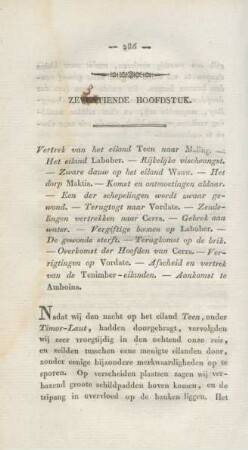 — 286 —
ZEVENTIENDE HOOFDSTUK.
Vertrek van het eiland Teen naar Maling. —
Het eiland Labober. — Rijkelijke vischvangst.
— Zware dauw op het eiland — Het
dorp Maktia. — Komst en ontmoetingen aldaar.
— Een der schepelingen wordt zwaar ge-
wond. — Terugtogt naar Vordate. — Zende-
lingen vertrekken naar Cerra. — Gebrek aan
water. — Vergiftige boonen op Labober. —
De gewonde sterft. — Terugkomst op de brik.
— Overkomst der Hoofden van Cerra. — Ver-
rigtingen op Vordate. — Afscheid en vertrek
van de Tenimber-eilanden. — Aankomst te
Amboina.
Nadat wij den nacht op het eiland Teen, onder
Timor-Laut, hadden doorgebragt, vervolgden
wij zeer vroegtijdig in den ochtend onze reis,
en zeilden tusschen eene menigte eilanden door,
zonder eenige bijzondere merkwaardigheden op te
sporen. Op verscheidene plaatsen zagen wij ver-
bazend groote schildpadden boven komen, en de
tripang in overvloed op de banken liggen. Het